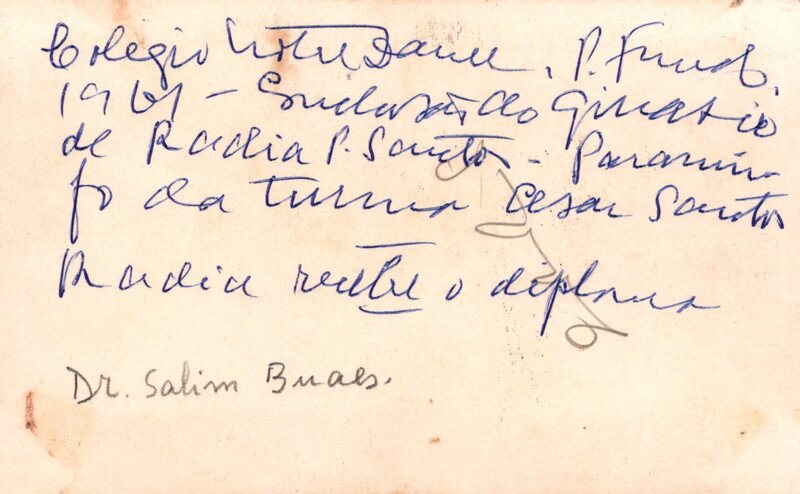 Colegio Notre Dame, P. Fundo,
1961 - Conclusão do Ginasio
de Radia P. Santos - Paranin-
fo da turma Cesar Santos
Radia recebe o diploma
Dr. Salim Buaes.